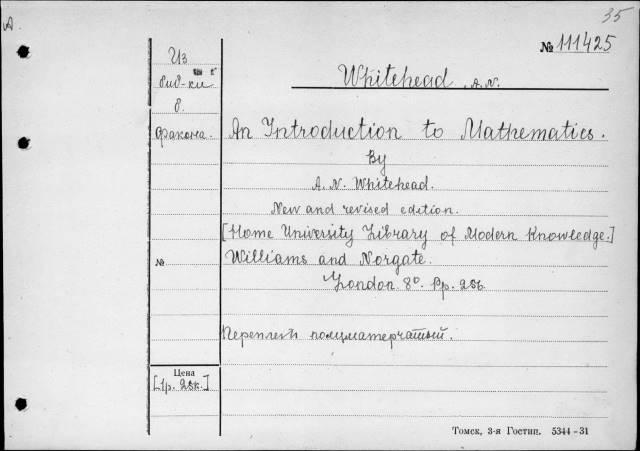 A.
35
№ 111425
Из
биб-ки
в.
Фракона.
Whitehead, A.N.
An Introduction to Mathematics.
By
A. N. Whitehead.
New and revised edition.
[Home University Library of Modern Knowledge.]
№
Williams and Norgate.
London 8°. Pp. 256.
Переплетъ полуматерчатый.
Цена
[1р. 25к.]
Томск, 3-я Гостип. 5344-31